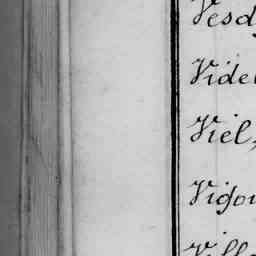 Vesd
Videl
Viel,
Vigou
Vill